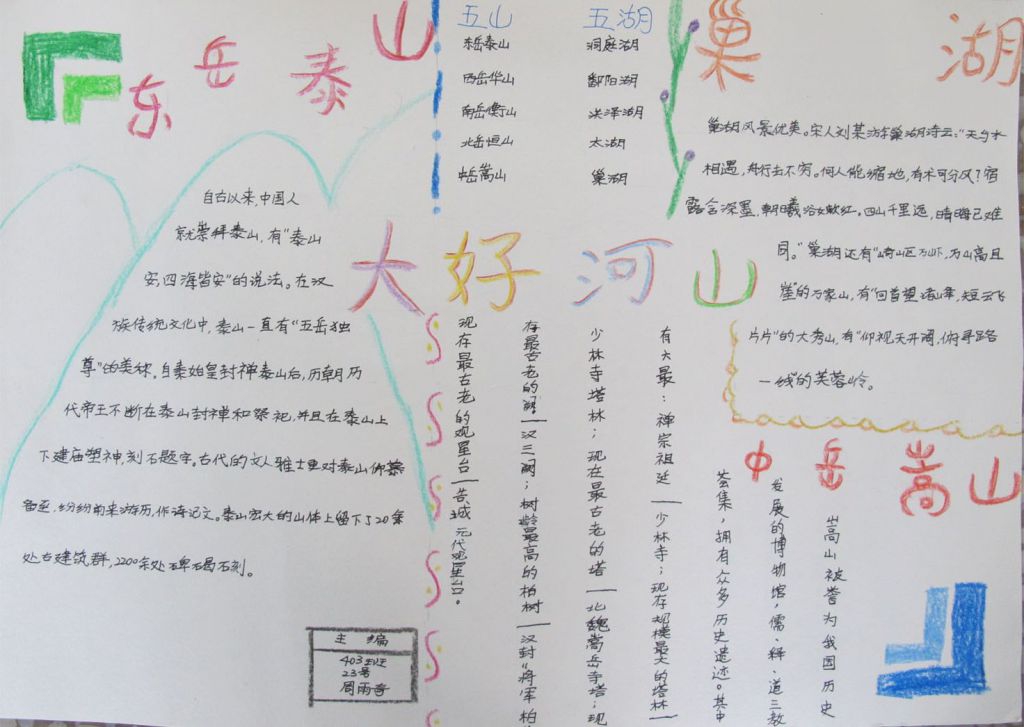 东岳泰山
自古以来,中国人
就崇拜泰山,有“泰山
安,四海皆安”的说法。在汉
族传统文化中,泰山一直有“五岳独
尊”的美称。自秦始皇封禅泰山后,历朝历
代帝王不断在泰山封禅和祭祀,并且在泰山上
下建庙塑神,刻石题字。古代的文人雅士更对泰山仰慕
备至,纷纷前来游历,作诗记文。泰山宏大的山体上留下了20余
处古建筑群,2200余处碑碣石刻。
主编
403班
23号
周雨奇
五山
东岳泰山
西岳华山
南岳衡山
北岳恒山
中岳嵩山
五湖
洞庭湖
鄱阳湖
洪泽湖
太湖
巢湖
大好河山
巢湖
巢湖风景优美。宋人刘某游巢湖诗云:“天与水
相遇,舟行去不穷。何人能缩地,有术可分风?宿
露含深墨,朝曦浴女嫩红。四山千里远,晴晦已难
同。”巢湖还有“崎山区万山下,万山高且
崖”的万家山,有“回首望诸峰,短云飞
片片”的大秀山,有“仰视天开阔,俯寻路
一线”的芙蓉岭。
中岳嵩山
嵩山被誉为我国历史
发展的博物馆,儒、释、道三教
荟集,拥有众多历史遗迹。其中
有六最:禅宗祖廷—少林寺;现存规模最大的塔林—
少林寺塔林;现存最古老的塔—北魏嵩岳寺塔;现
存最古老的阙—汉三阙;树龄最高的柏树—汉封“将军柏
现存最古老的观星台—告城元代观星台。